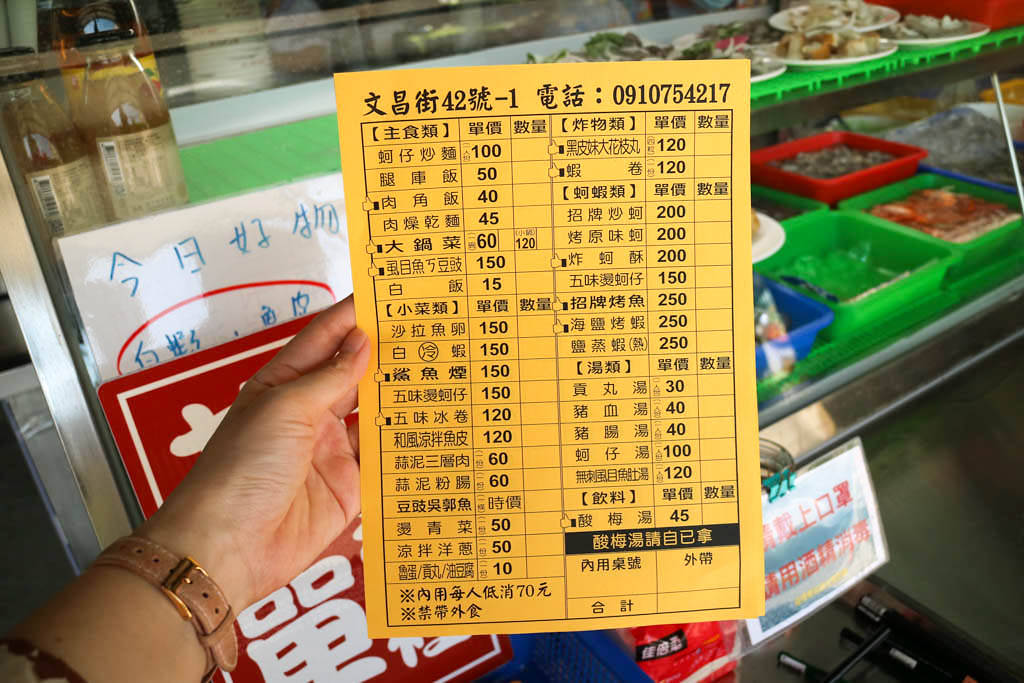 文昌街42號-1 電話：0910754217
【主食類】 單價 數量
蚵仔炒麵 一份100
腿庫飯 50
肉角飯 40
肉燥乾麵 45
大鍋菜 60 (小鍋)120
虱目魚ㄎ豆豉 150
白飯 15
【小菜類】 單價 數量
沙拉魚卵 150
白冷蝦 150
鯊魚煙 150
五味燙蚵仔 150
五味冰卷 120
和風涼拌魚皮 120
蒜泥三層肉 一份60
蒜泥粉腸 一份60
豆豉吳郭魚 一條時價
燙青菜 一份50
涼拌洋蔥 一份50
魯蛋/貢丸/油豆腐 一份10
※內用每人低消70元
※禁帶外食
【炸物類】 單價 數量
黑皮妹大花枝丸 四粒120
蝦卷 120
【蚵蝦類】 單價 數量
招牌炒蚵 200
烤原味蚵 200
炸蚵酥 200
五味燙蚵仔 150
招牌烤魚 250
海鹽烤蝦 250
鹽蒸蝦(熱) 250
【湯類】 單價 數量
貢丸湯 30
豬血湯 40
豬腸湯 40
蚵仔湯 100
無刺虱目魚肚湯 120
【飲料】 單價 數量
酸梅湯 45
酸梅湯請自已拿
內用桌號 外帶
合計
今日好物
白蝦、魚皮
單
請戴上口罩
請用酒精消毒
佳倍